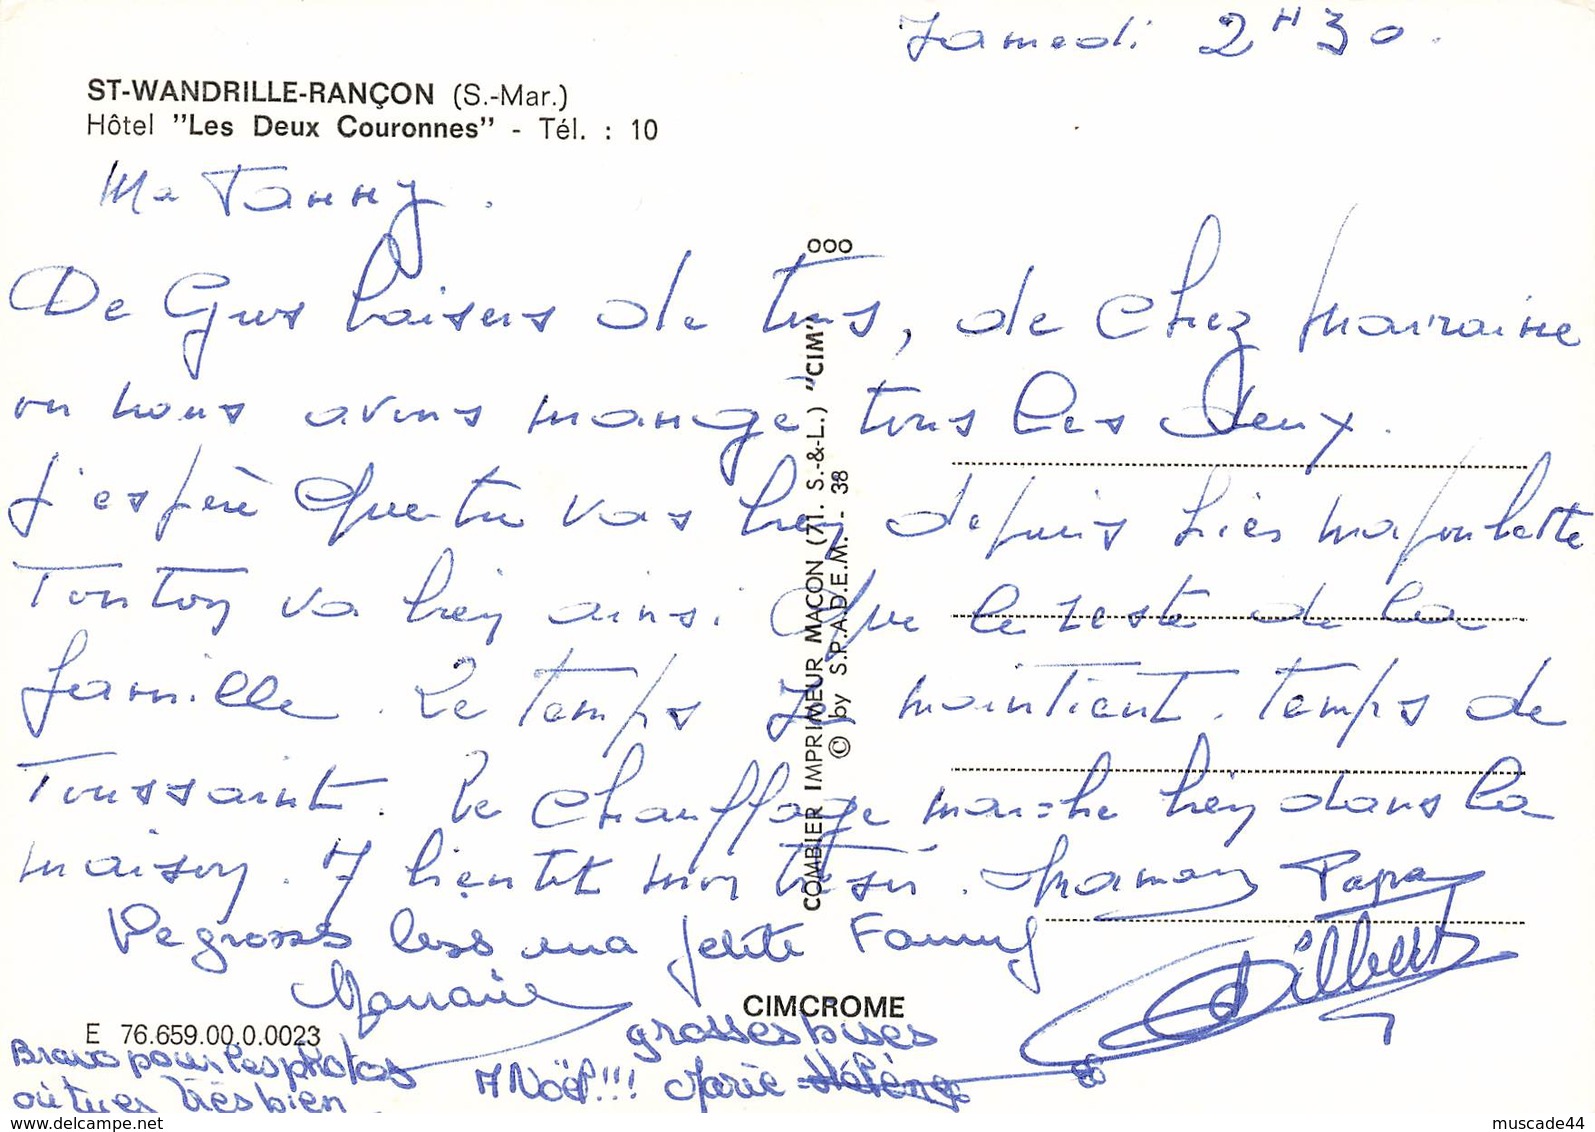 Samedi 2H30.
ST-WANDRILLE-RANÇON (S.-Mar.)
Hôtel "Les Deux Couronnes" - Tél. : 10
Ma Fanny.
De Gros baisers de tous, de chez Marraine
ou nous avons mangé tous les deux.
J'espère que tu vas bien depuis hier ma poulette
Tonton va bien ainsi que le reste de la
famille. Le temps se maintient. temps de
Toussaint. Le chauffage marche bien dans la
maison. A bientôt mon trésor. Maman Papa
De grosses bises ma petite Fanny
Marraine
Gilbert
grosses bises
A Noël!!! Marie-Hélène
Bravo pour les photos
où tu es très bien
COMBIER IMPRIMEUR MACON (71. S.-&-L.) "CIM"
© by S.P.A.D.E.M. - 38
CIMCROME
E 76.659.00.0.0023
www.delcampe.net
muscade44